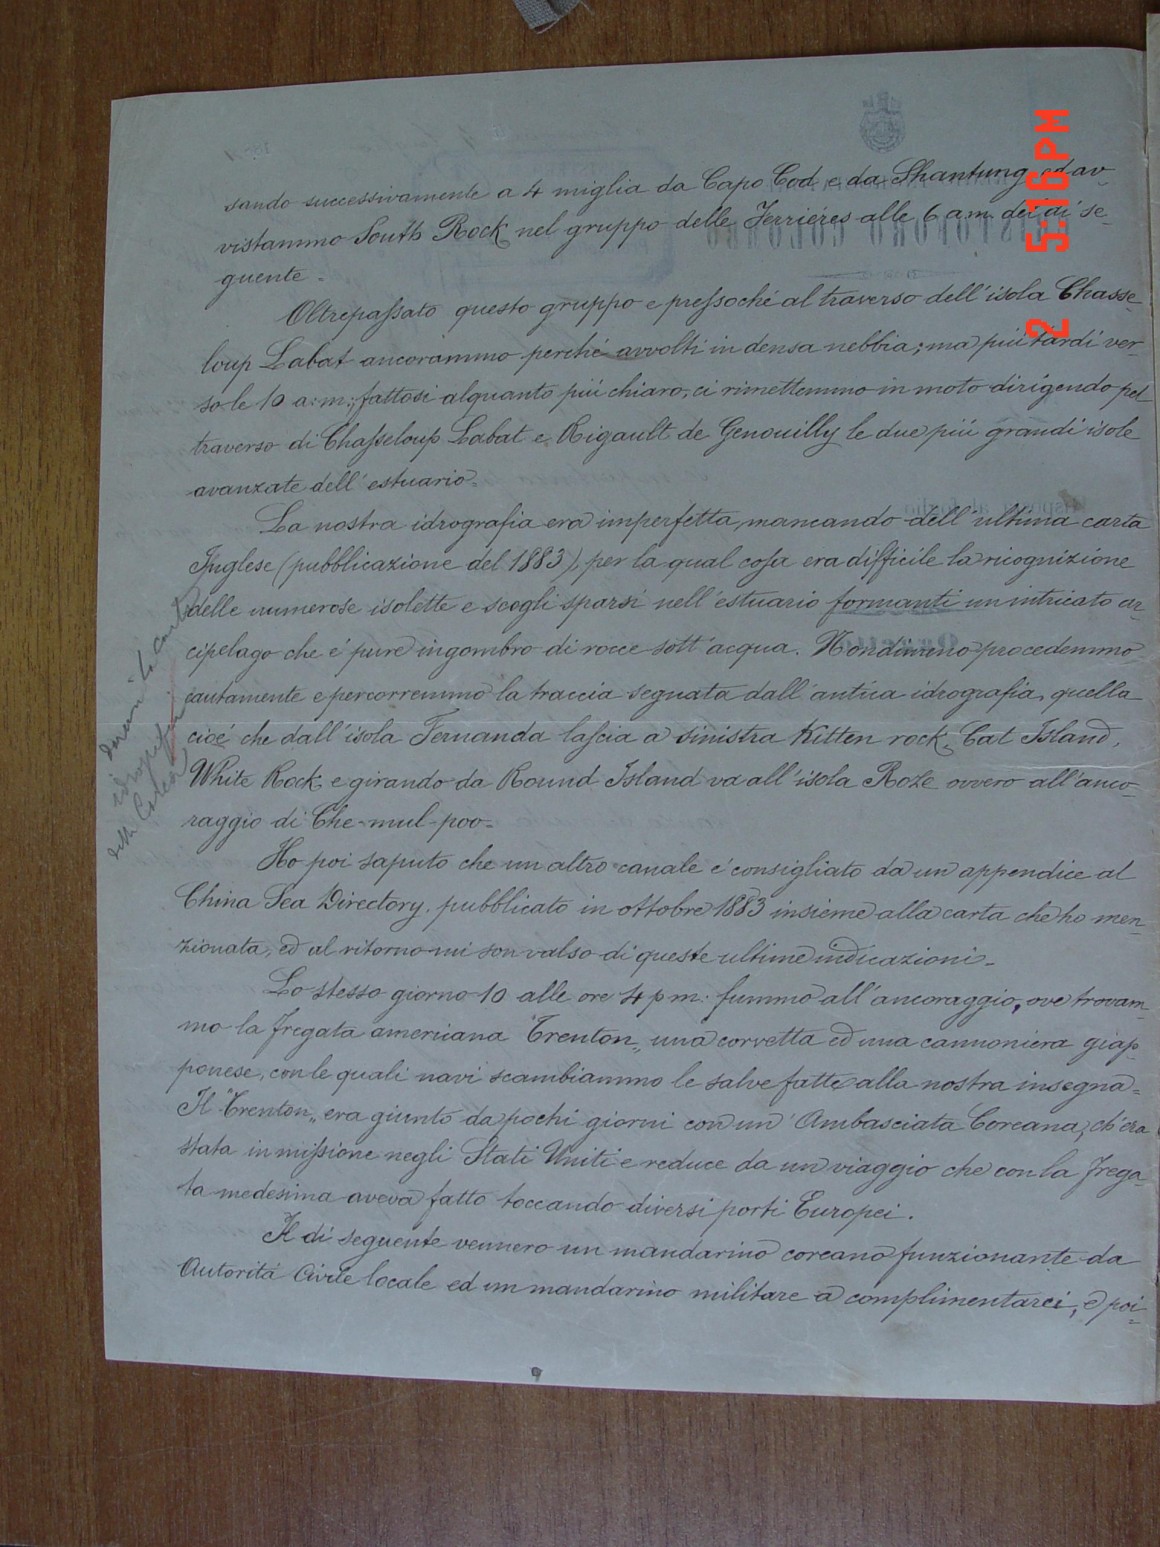 sando successivamente a 4 miglia da Capo Cod e da Shantung ed av-
vistammo South Rock nel gruppo delle Ferriéres alle 6 a.m. del di se-
guente.
Oltrepassato questo gruppo e pressoché al traverso dell'isola Chasse-
loup Labat ancorammo perché avvolti in densa nebbia; ma piú tardi ver-
so le 10 a.m., fattosi alquanto piú chiaro, ci rimettemmo in moto dirigendo pel
traverso di Chasseloup Labat e Rigault de Genouilly le due piú grandi isole
avanzate dell'estuario.
La nostra idrografia era imperfetta, mancando dell'ultima carta
Inglese (pubblicazione del 1883), per la qual cosa era difficile la ricognizione
delle numerose isolette e scogli sparsi nell'estuario formanti un intricato ar-
cipelago che é pure ingombro di rocce sott'acqua. Nondimeno procedemmo
cautamente e percorremmo la traccia segnata dall'antica idrografia, quella
cioé che dall'isola Fernanda lascia a sinistra Kitten rock, Cat Island,
White Rock e girando da Round Island va all'isola Roze ovvero all'anco-
raggio di Che-mul-poo.
Ho poi saputo che un altro canale é consigliato da un appendice al
China Sea Directory, pubblicato in ottobre 1883 insieme alla carta che ho men-
zionata, ed al ritorno mi son valso di queste ultime indicazioni.
Lo stesso giorno 10 alle ore 4 p.m. fummo all'ancoraggio, ove trovam-
mo la fregata americana "Trenton„ una corvetta ed una cannoniera giap-
ponese, con le quali navi scambiammo le salve fatte alla nostra insegna.
Il "Trenton„ era giunto da pochi giorni con un'Ambasciata Coreana, ch'era
stata in missione negli Stati Uniti e reduce da un viaggio che con la frega-
ta medesima aveva fatto toccando diversi porti Europei.
Il di seguente vennero un mandarino coreano funzionante da
Autoritá Civile locale ed un mandarino militare a complimentarci, e poi-
idrografia
della Corea
2 5:16PM